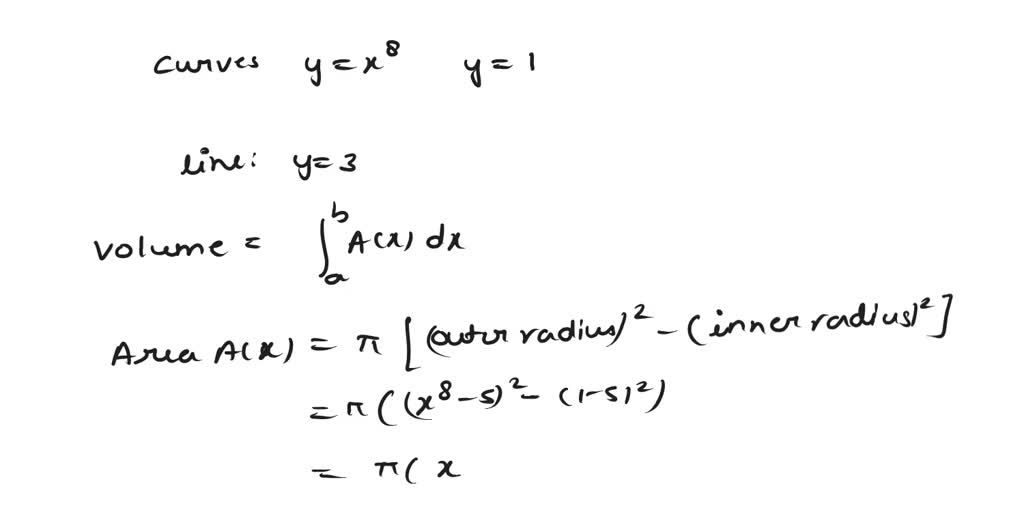 curves y = x⁸ y = 1
line: y = 3
Volume = ∫ₐᵇ A(x) dx
Area A(x) = π [(outer radius)² - (inner radius)²]
= π ((x⁸ - 5)² - (1-5)²)
= π( x